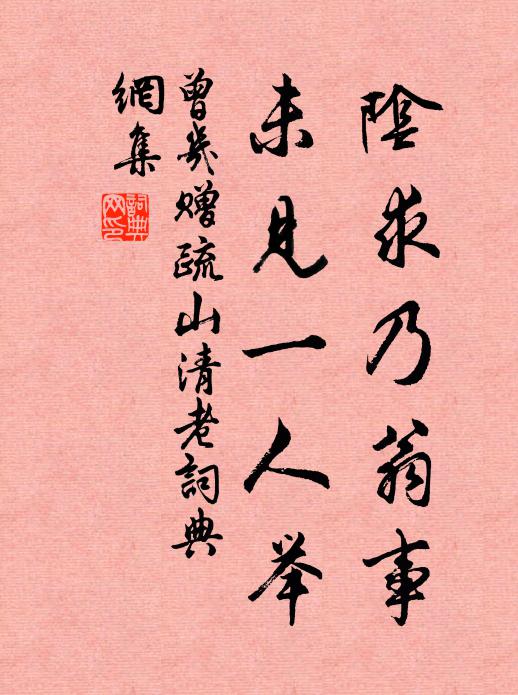 陰求乃翁事
未見一人举
曾几贈疏山清老詞典
網集
詞典
网印